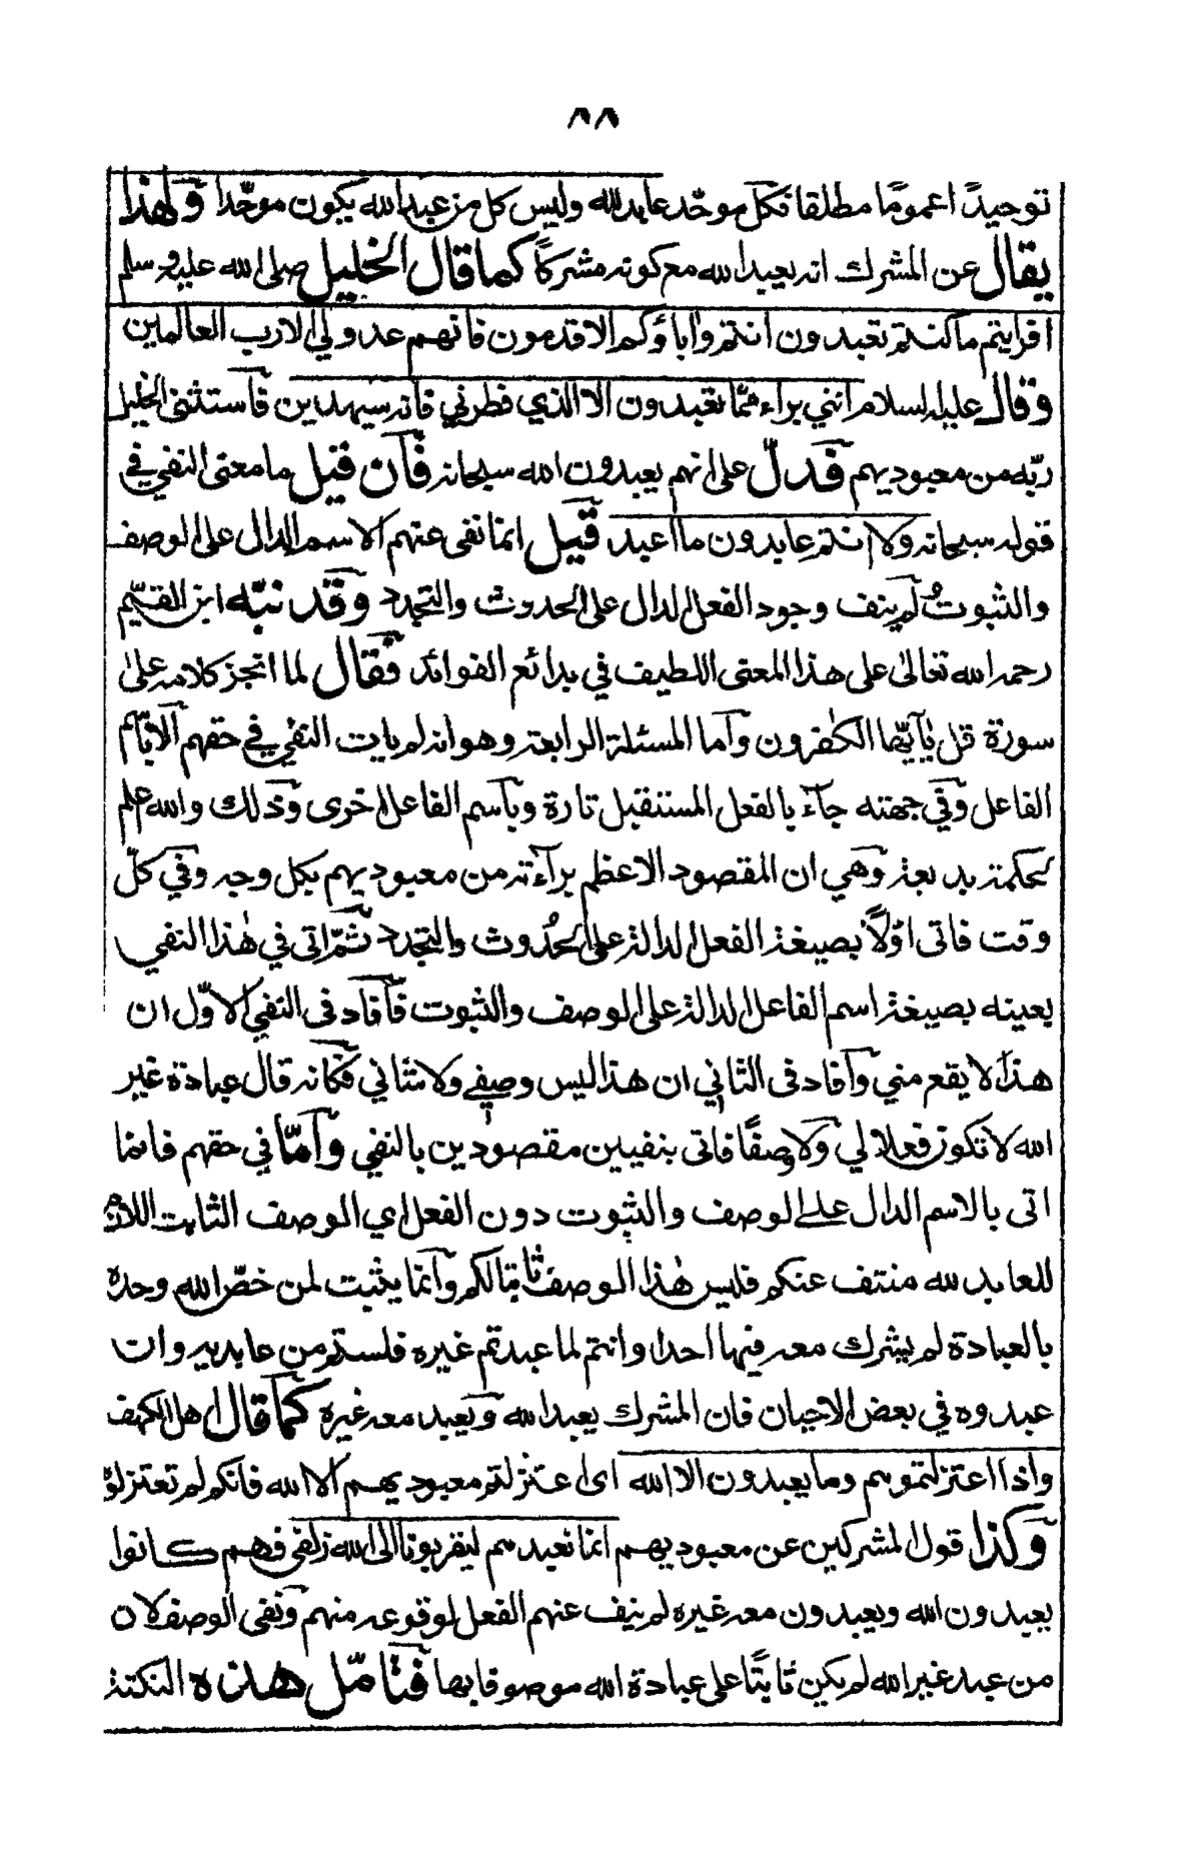 ٨٨
توحيدًا عمومًا مطلقا فكل موحّد عابد لله وليس كل من عبد الله يكون موحّدا ولهذا
يقال عن المشرك انه يعبد الله مع كونه مشركًا كما قال الخليل صلى الله عليه وسلم
افرايتم ما كنتم تعبدون انتم واٰباؤكم الاقدمون فانهم عدو لي الا رب العالمين
وقال عليه السلام انني براء ممّا تعبدون الا الذي فطرني فانه سيهدين فاستثنى الخليل
ربّه من معبوديهم فدلّ على انهم يعبدون الله سبحانه فان قيل ما معنى النفي في
قوله سبحانه ولا انتم عابدون ما اعبد قيل انما نفى عنهم الاسم الدال على الوصف
والثبوت لم ينف وجود الفعل الدال على الحدوث والتجدد وقد نبّه ابن القيّم
رحمه الله تعالىٰ على هذا المعنى اللطيف في بدائع الفوائد فقال لما انجز كلامه علىٰ
سورة قل يٰآيّها الكٰفرون وآما المسئلة الرابعة وهو انه لم يات النفي في حقهم الا باسم
الفاعل وفي جهته جآء بالفعل المستقبل تارة وباسم الفاعل اخرى وذلك والله اعلم
لحكمة بديعة وهي ان المقصود الاعظم برآءته من معبوديهم بكل وجه وفي كلّ
وقت فاتى اوّلًا بصيغة الفعل الدالة على الحدُوث والتجدد ثمّ اتى في هٰذا النفي
بعينه بصيغة اسم الفاعل الدالة على الوصف والثبوت فافاد فى النفي الاوّل ان
هذا لا يقع مني وافاد فى الثاني ان هذا ليس وصفي ولا شاني فكانه قال عبادة غير
الله لا تكون فعلا لي ولا وصفًا فاتى بنفيين مقصودين بالنفي وامّا في حقهم فانما
اتى بالاسم الدال على الوصف والثبوت دون الفعل اي الوصف الثابت اللازم
للعابد لله منتف عنكم فليس هٰذا الوصف ثابتا لكم وانما يثبت لمن خصّ الله وحده
بالعبادة لم يشرك معه فيها احدا وانتم لما عبدتم غيره فلستم من عابديه وان
عبدوه في بعض الاحيان فان المشرك يعبد الله ويعبد معه غيره كما قال اهل الكهف
واذا اعتزلتموهم وما يعبدون الا الله اى اعتزلتم معبوديهم الا الله فانكم لم تعتزلوه
وكذا قول المشركين عن معبوديهم انما نعبدهم ليقربونا الى الله زلفى فهم كانوا
يعبدون الله ويعبدون معه غيره لم ينف عنهم الفعل لوقوعه منهم ونفى الوصف لان
من عبد غير الله لم يكن ثابتًا على عبادة الله موصوفا بها فتامّل هذه النكتة